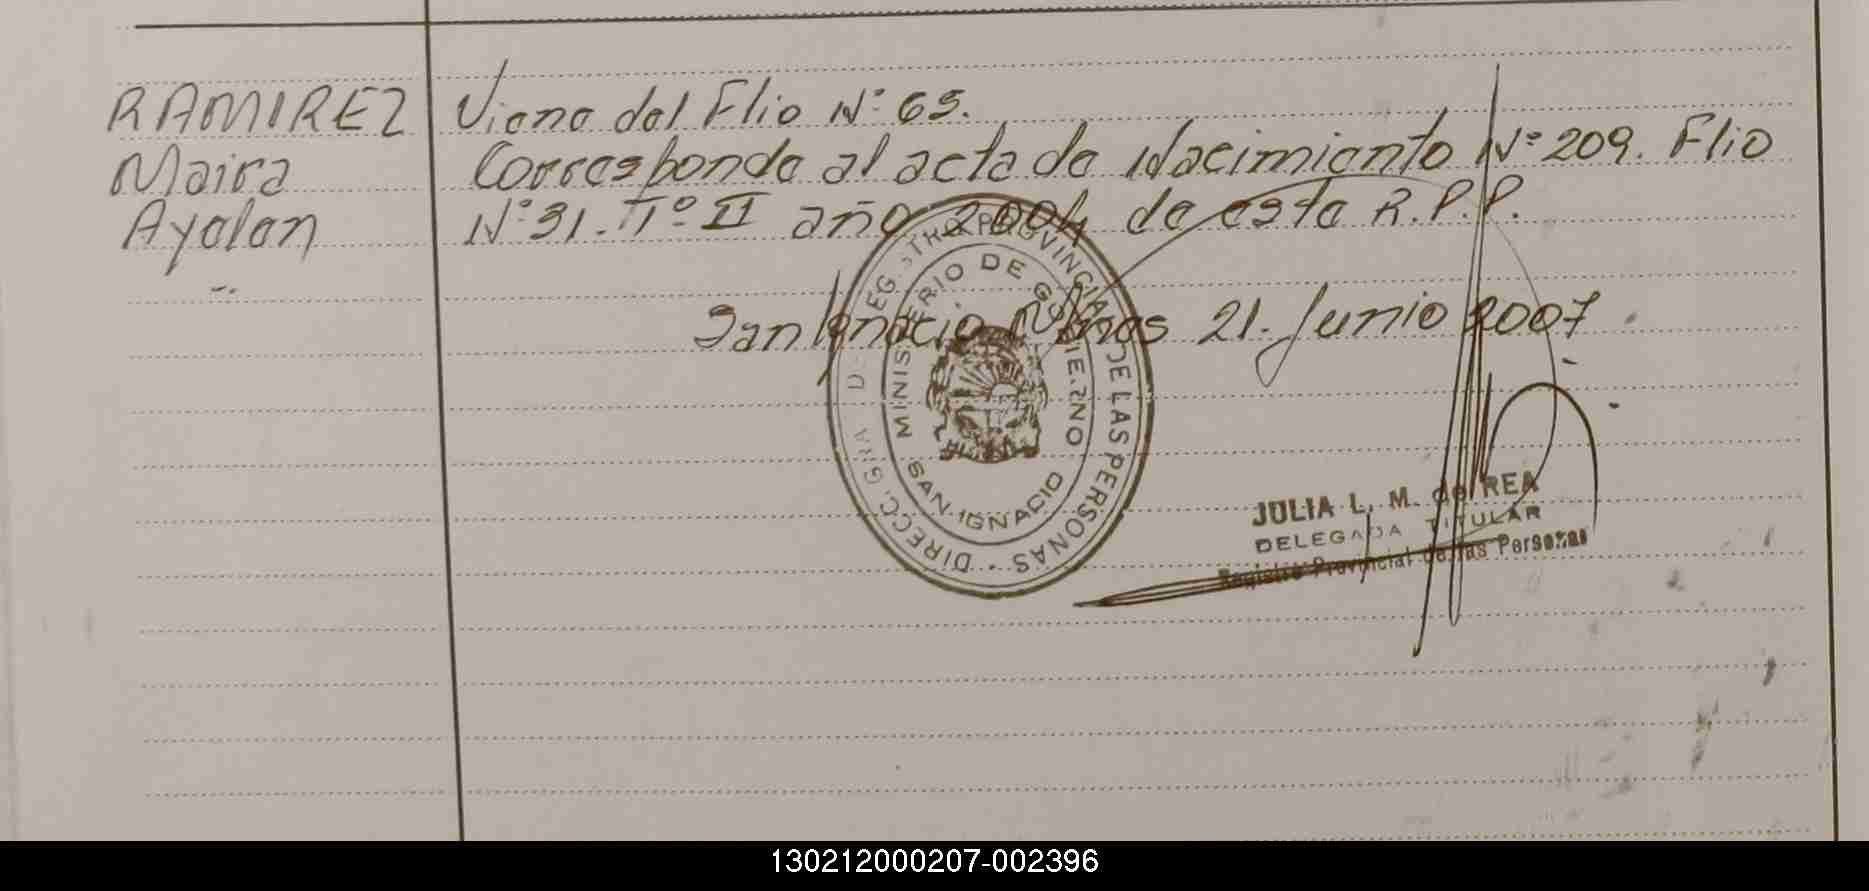 RAMIREZ
Maira
Ayalen
Viene del Flio Nº 65.
Corresponde al acta de Nacimiento Nº 209. Flio
Nº 31. Tº II año 2004 de esta R.P.P.
San Ignacio Mnes 21. Junio 2007
DIRECC. GRAL DE REGISTRO PROVINCIAL DE LAS PERSONAS
MINISTERIO DE GOBIERNO
SAN IGNACIO
JULIA L. M. de REA
DELEGADA TITULAR
Registro Provincial de las Personas
130212000207-002396